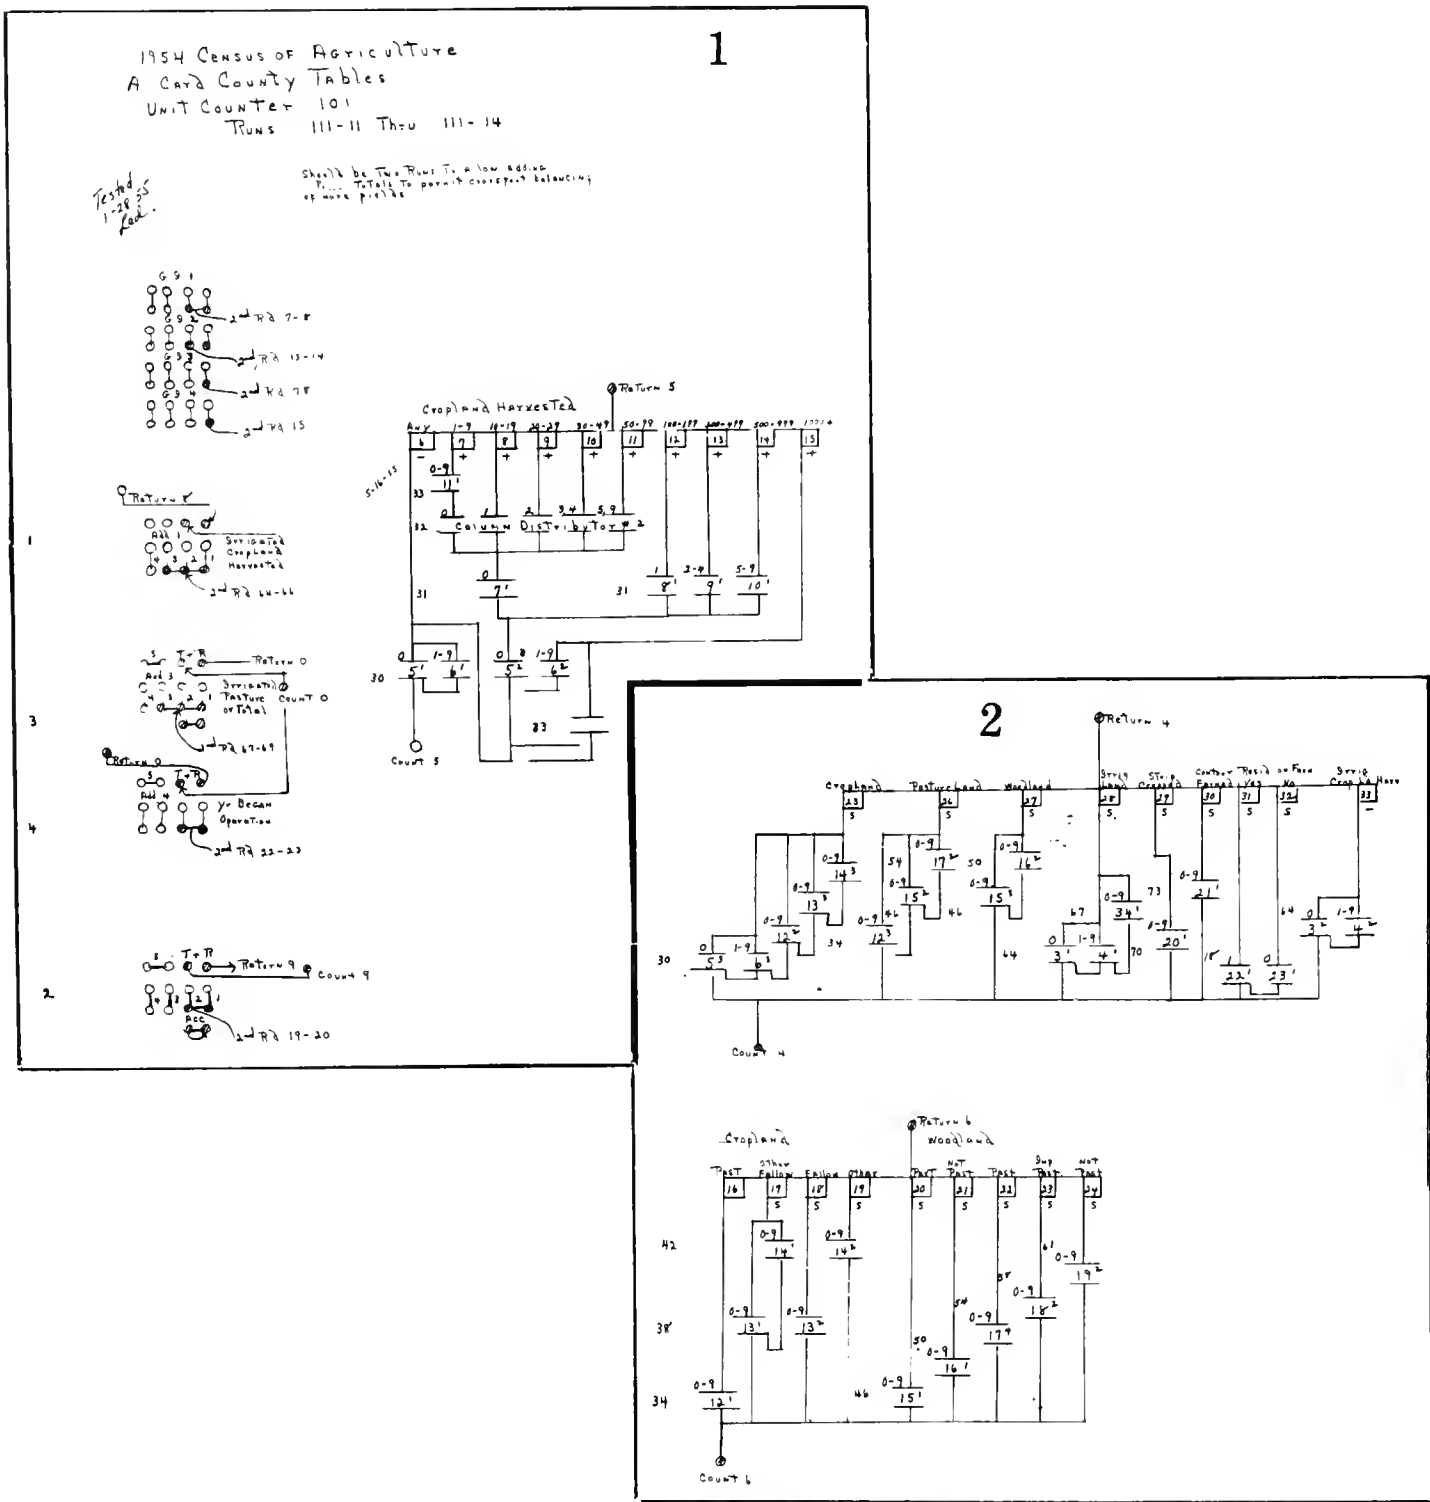 1
1954 Census of Agriculture
A Card County Tables
Unit Counter 101
Runs 111-11 Thru 111-14
Should be Two Runs To allow adding
Totals To permit crosspoot balancing
of more fields
Tested
1-28-55
Led.
GS 1
2nd Rd 7-8
GS 2
2nd Rd 13-14
GS 3
2nd Rd 78
GS 4
2nd Rd 15
Return 8
1
Add 1
Irrigated
Cropland
Harvested
4 3 2 1
2nd Rd 64-66
S T+R
Return 0
Add 3
Irrigated
Pasture
or Total
Count 0
4 3 2 1
3
2nd Rd 67-69
Return 0
S T+R
Add 4
Yr Began
Operation
4
2nd Rd 22-23
S T+R
Return 9
Count 9
2
4 3 2 1
Acc
2nd Rd 19-20
Return 5
Cropland Harvested
Any 1-9 10-19 20-29 30-49 50-99 100-199 200-499 500-999 1000+
6 7 8 9 10 11 12 13 14 15
- + + + + + + + + +
5-16-55
0-9
33 11¹
0 1 2 3,4 5,9
32 Column Distributor #2
0 1 2-4 5-9
31 7¹ 31 8¹ 9¹ 10¹
0 1-9 0 8 1-9
30 5¹ 6¹ 5² 6²
33
Count 5
2
Return 4
Cropland Pasture Land Woodland Irrig Land Strip Cropped Contour Farmed Resid on Farm Yes No Irrig Cropld Harv
25 26 27 28 29 30 31 32 33
S S S S S S S S -
0-9 14³ 54 0-9 17² 50 0-9 16²
0-9 13³ 0-9 15² 0-9 15³ 0-9 34¹ 73 0-9 21¹
0-9 12² 34 46 0-9 12³ 46 67 0-9 20¹ 64 0 3² 1-9 4²
30 0 5³ 1-9 6³ 64 0 3¹ 1-9 4¹ 70 18 1 22¹ 0 23¹
Count 4
Return 6
Cropland Woodland
Past Other Fallow Fallow Other Past Not Past Past Imp Past. Not Past
16 17 18 19 20 21 22 23 24
S S S S S S S S
42 0-9 14¹ 0-9 14² 61 0-9 19²
58 0-9 18²
38 0-9 13¹ 0-9 13² 54 0-9 17⁴
50 0-9 16¹
34 0-9 12¹ 46 0-9 15¹
Count 6